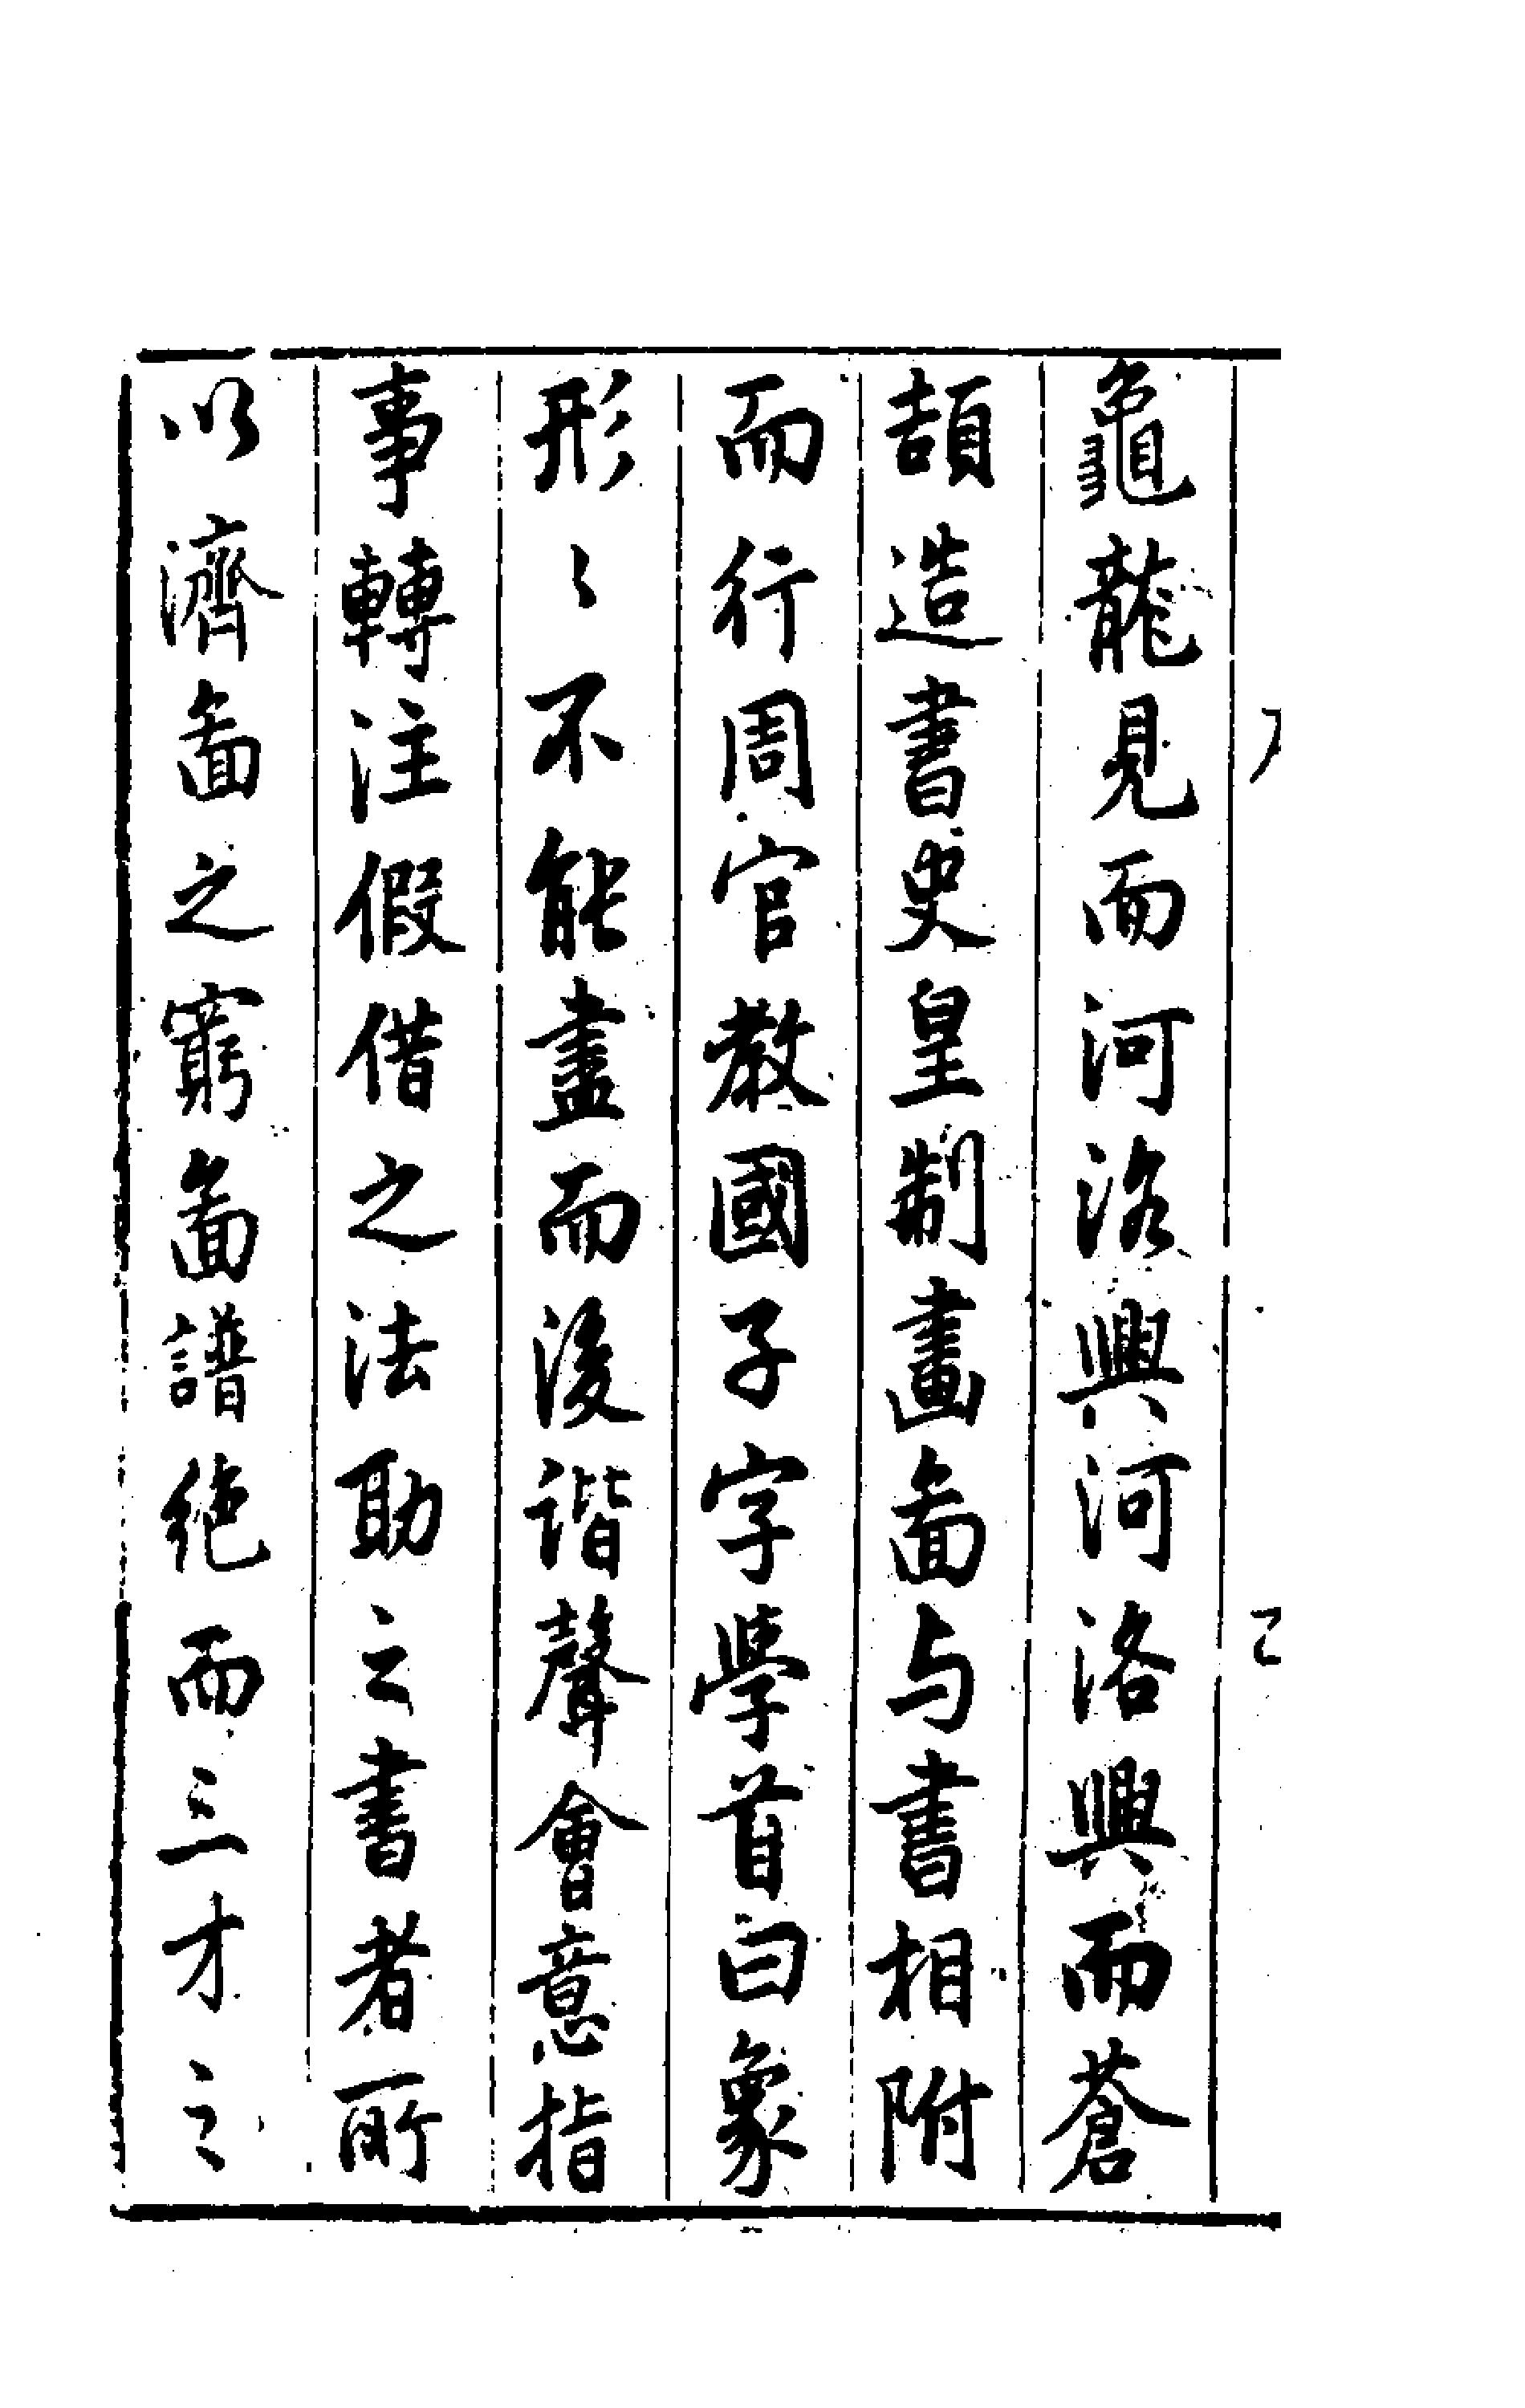 龜龍見而河洛興河洛興而蒼
頡造書史皇制畫啚与書相附
而行周官教國子字學首曰象
形〻不能盡而後諧聲會意指
事轉注假借之法助之書者所
以濟啚之窮啚譜絶而三才之